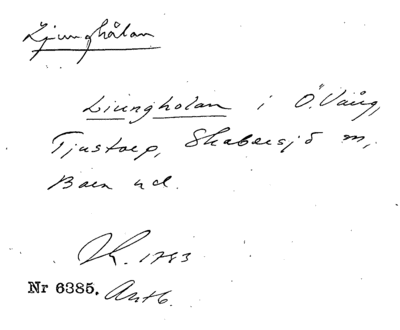 Ljunghålan
Liungholan i Ö. Vång,
Tjustorp, Skabersjö m,
Bara hd.
Sk. 1783
Nr 6385. Ant 6.